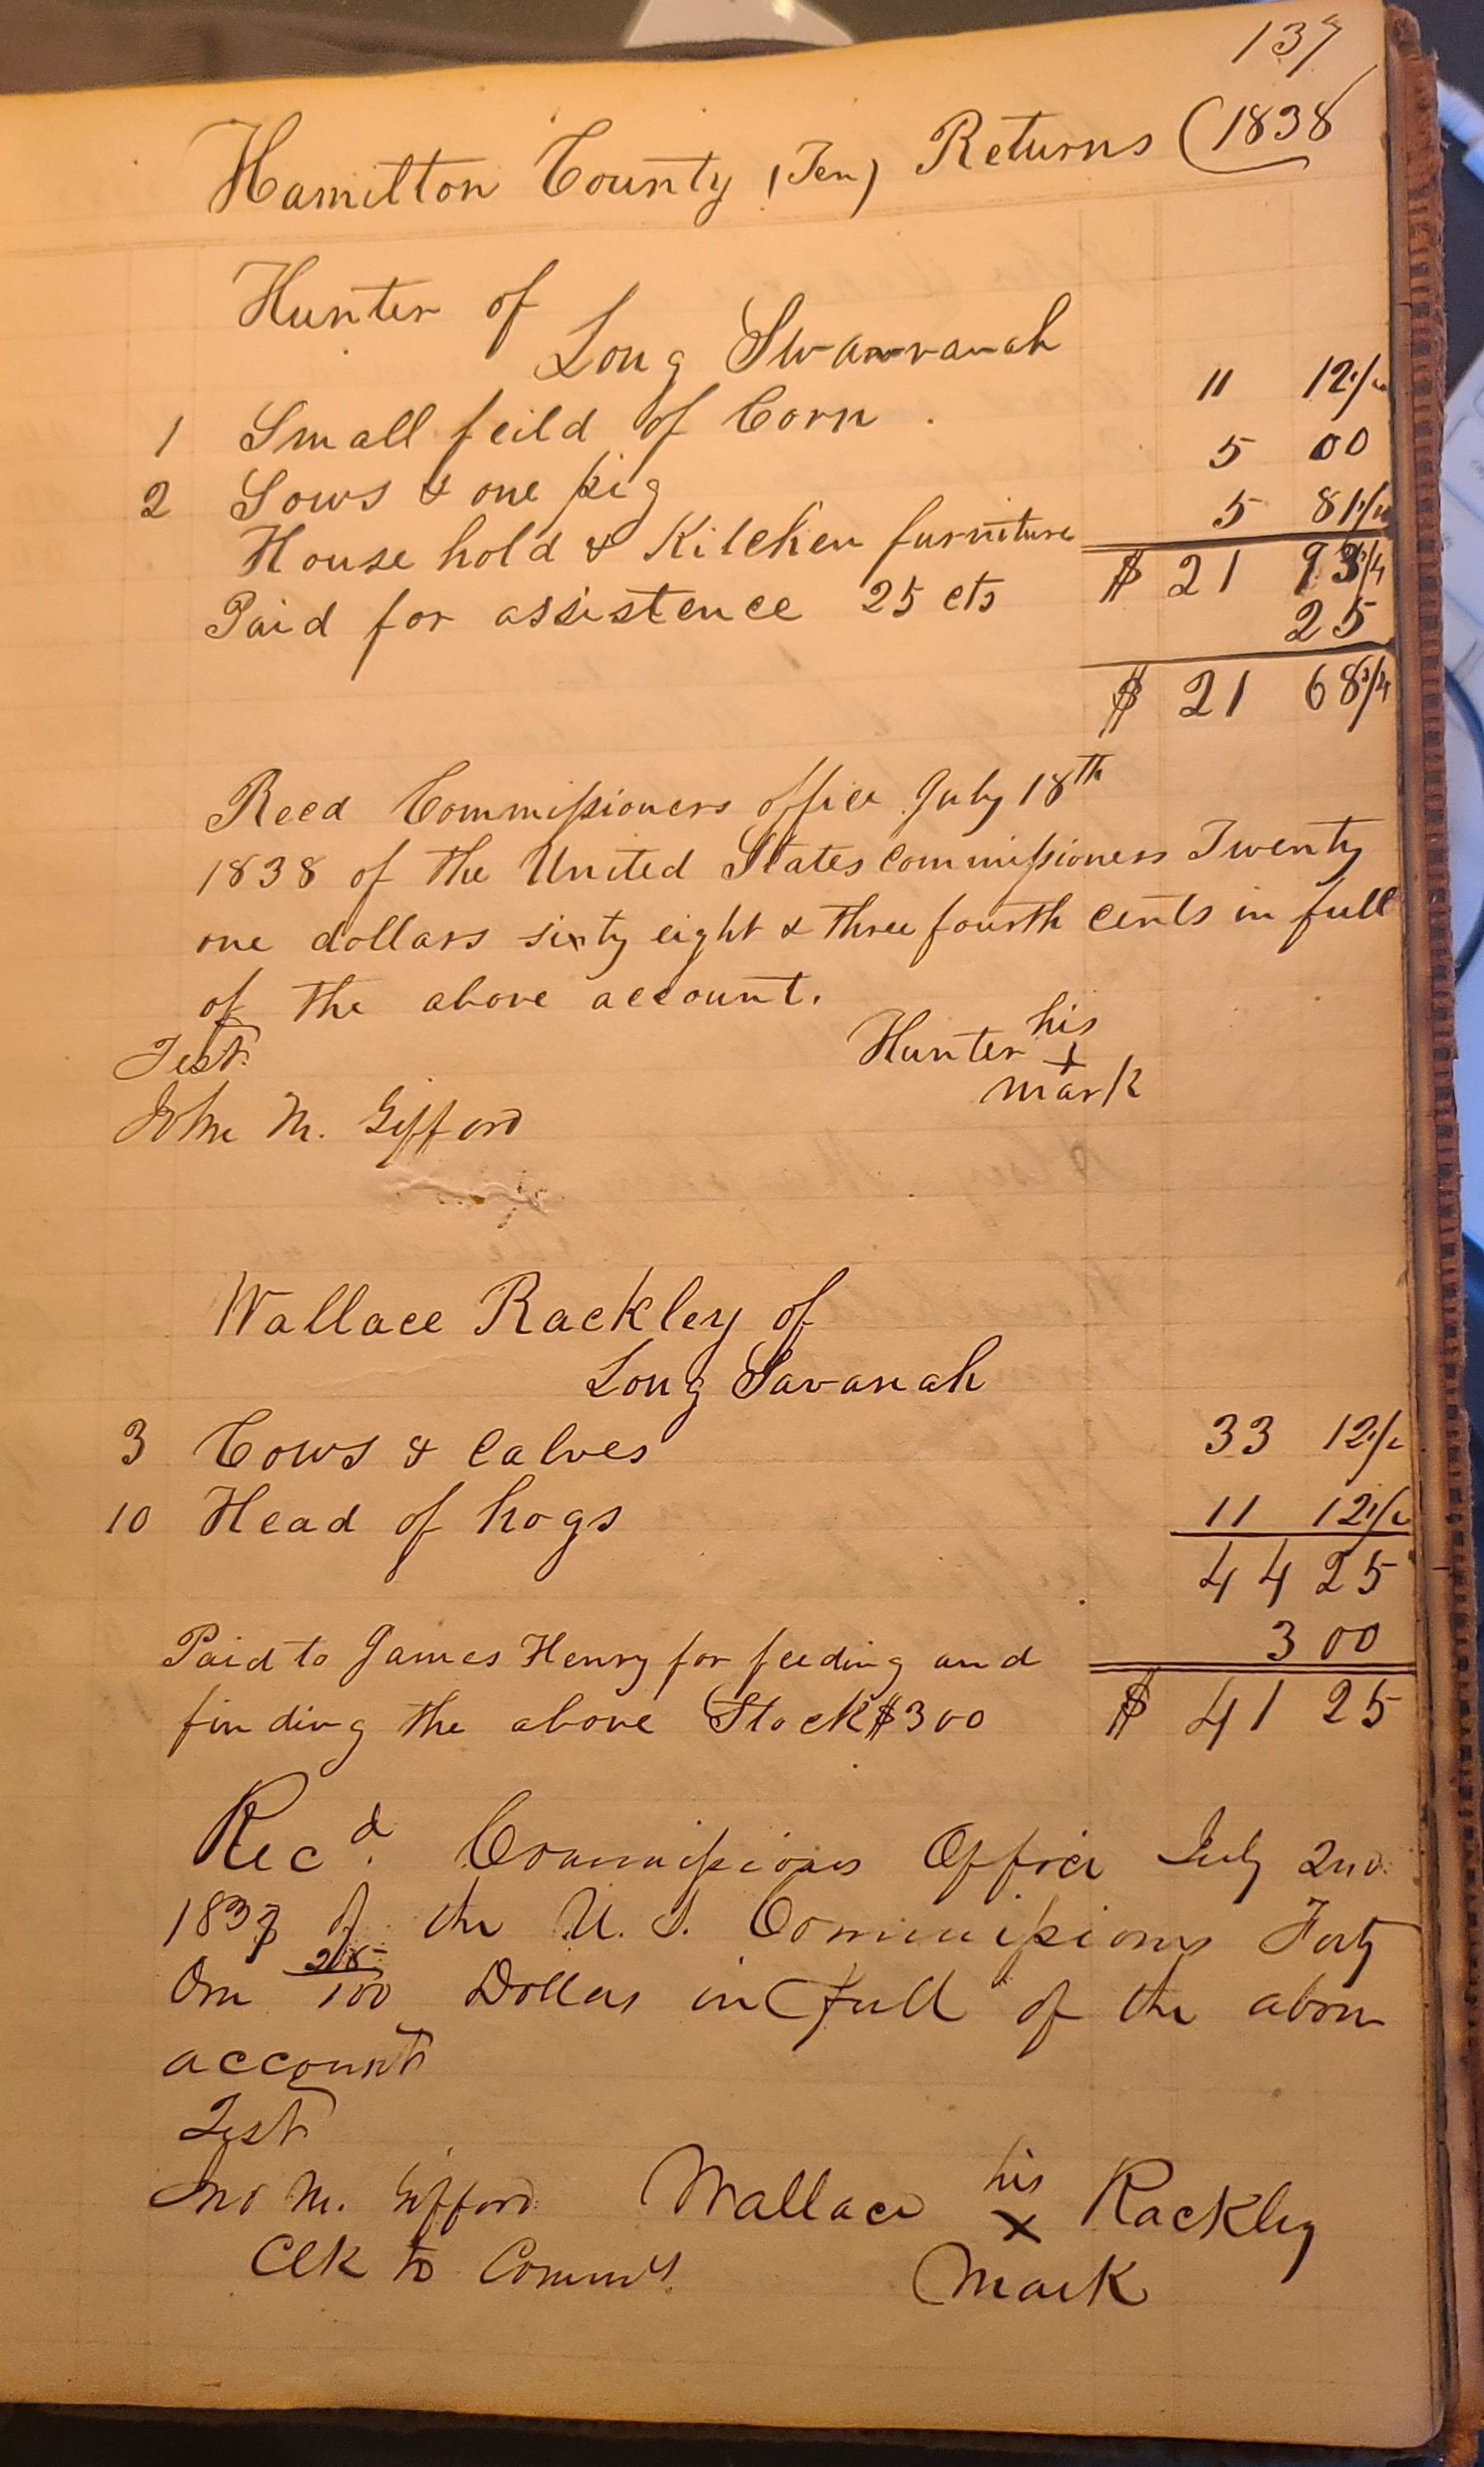 139
Hamilton County (Ten) Returns (1838
Hunter of
Long Swannanah
1 Small feild of Corn . 11 12 1/2
2 Sows & one pig 5 00
House hold & Kitchen furniture 5 81 1/4
$ 21 93 3/4
Paid for assistence 25 cts 25
$ 21 68 3/4
Recd Commissioners office July 18th
1838 of the United States commissioners Twenty
one dollars sixty eight & three fourth cents in full
of the above account.
Test. Hunter his
x
mark
John M. Gifford
Wallace Rackley of
Long Savanah
3 Cows & Calves 33 12 1/2
10 Head of hogs 11 12 1/2
44 25
3 00
Paid to James Henry for feeding and
finding the above Stock $3 00 $ 41 25
Recd. Commissions Office July 2nd
1838 of the U. S. Commissioners Forty
One 25/100 Dollars in full of the above
account
Test
Jno M. Gifford Wallace his x Rackley
Clk to Comm's Mark